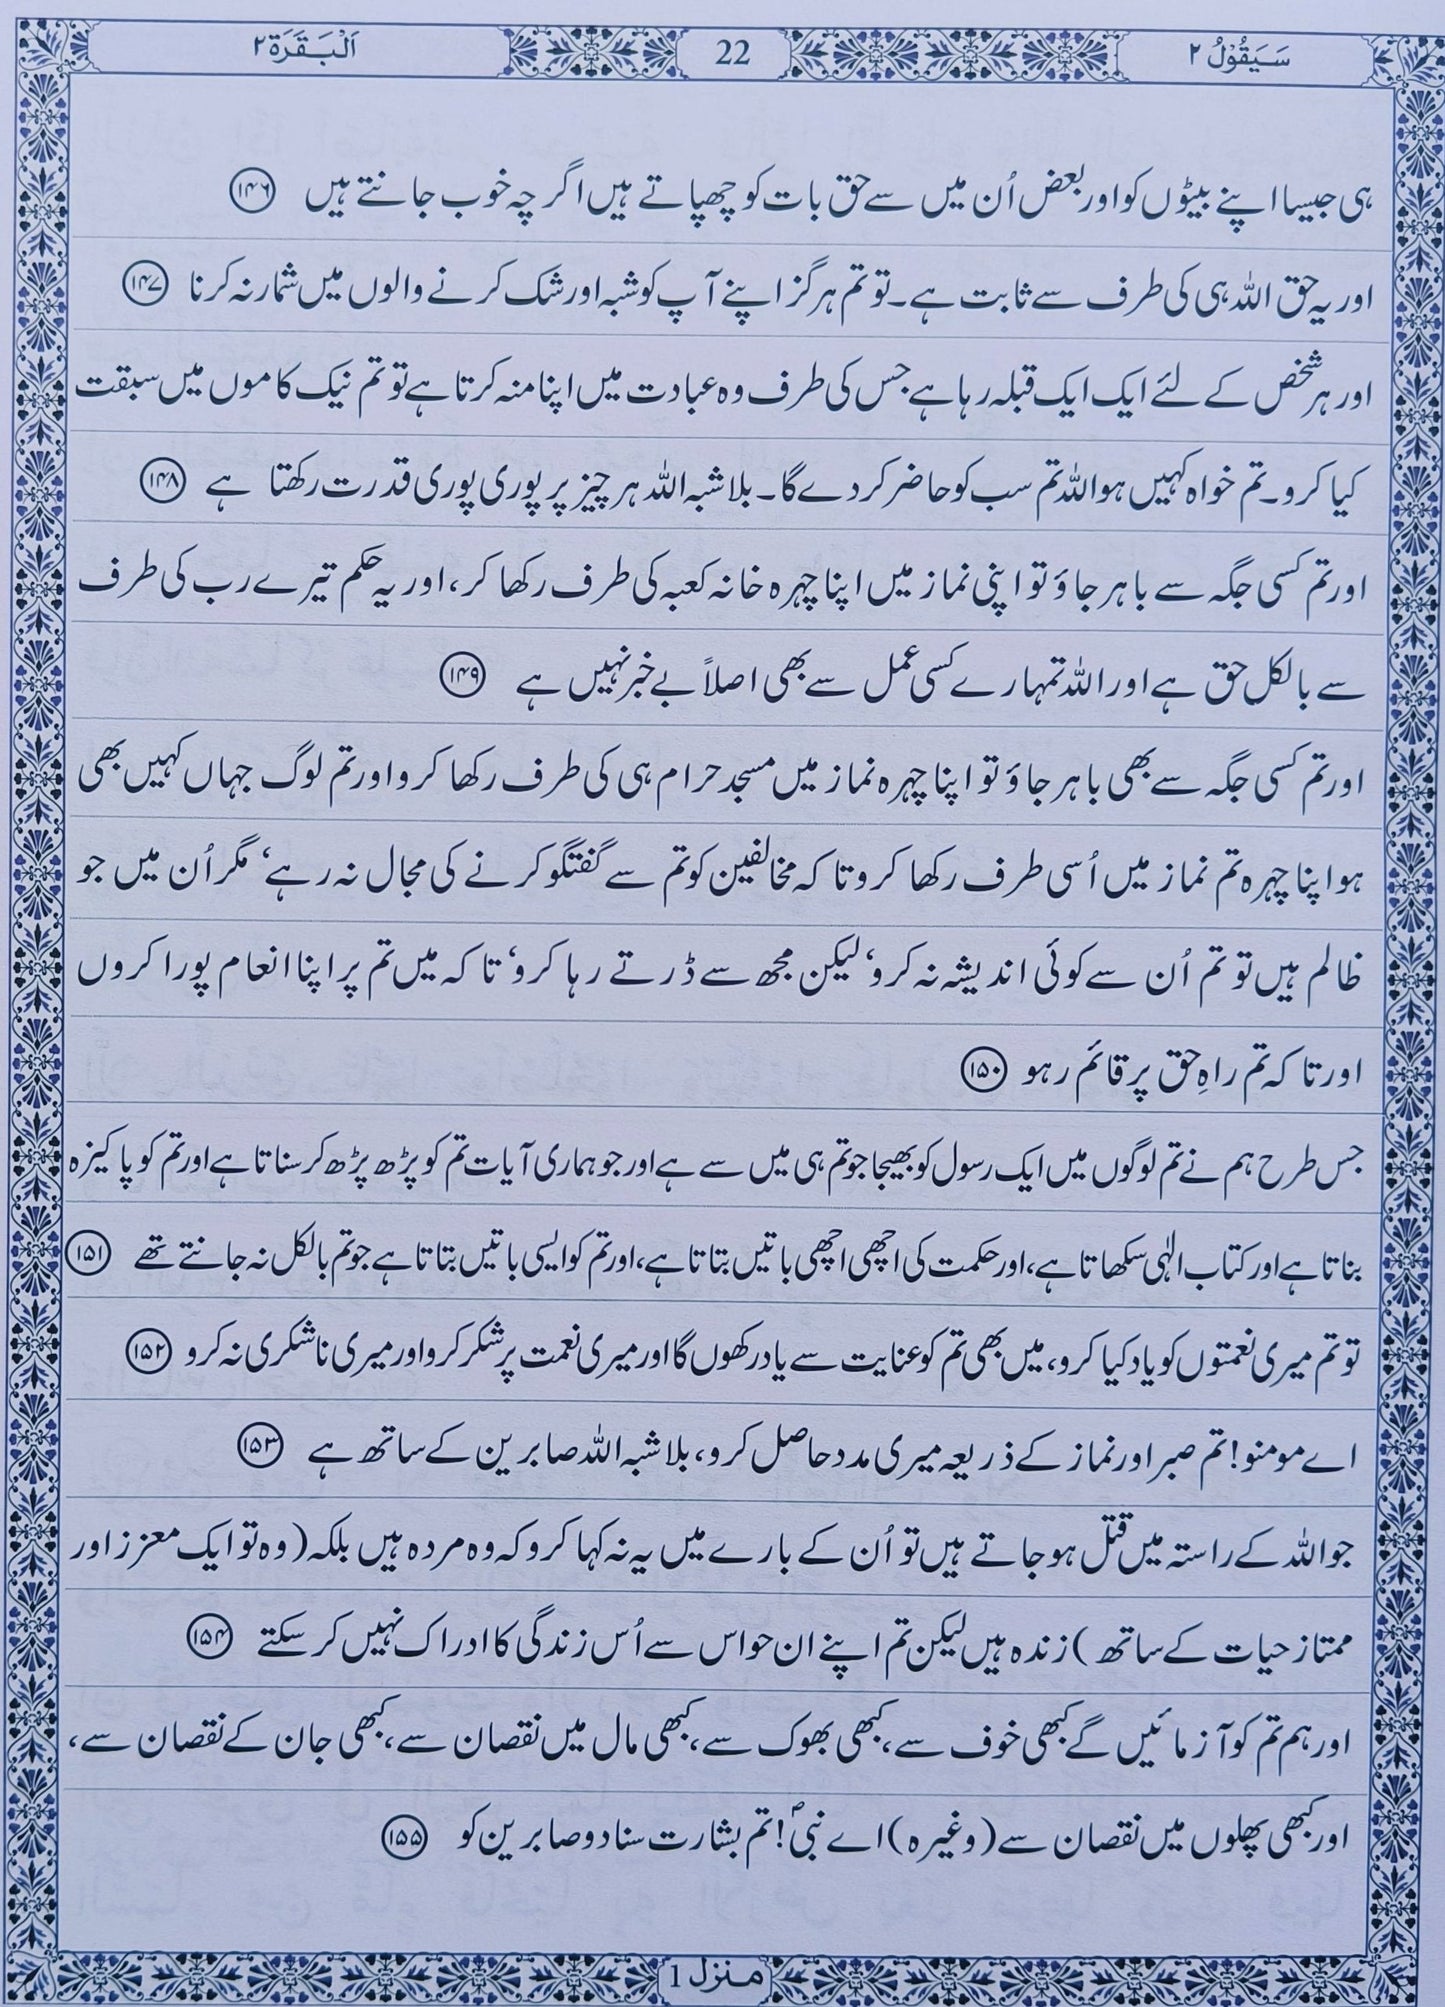 سَيَقُوْلُ ۲
22
اَلْبَقَرَة ۲
ہی جیسا اپنے بیٹوں کو اور بعض اُن میں سے حق بات کو چھپاتے ہیں اگر چہ خوب جانتے ہیں ۱۴۶
اور یہ حق اللہ ہی کی طرف سے ثابت ہے۔ تو تم ہرگز اپنے آپ کو شبہ اور شک کرنے والوں میں شمار نہ کرنا ۱۴۷
اور ہر شخص کے لئے ایک ایک قبلہ رہا ہے جس کی طرف وہ عبادت میں اپنا منہ کرتا ہے تو تم نیک کاموں میں سبقت
کیا کرو۔ تم خواہ کہیں ہو اللہ تم سب کو حاضر کردے گا۔ بلاشبہ اللہ ہر چیز پر پوری پوری قدرت رکھتا ہے ۱۴۸
اور تم کسی جگہ سے باہر جاؤ تو اپنی نماز میں اپنا چہرہ خانہ کعبہ کی طرف رکھا کر، اور یہ حکم تیرے رب کی طرف
سے بالکل حق ہے اور اللہ تمہارے کسی عمل سے بھی اصلاً بے خبر نہیں ہے ۱۴۹
اور تم کسی جگہ سے بھی باہر جاؤ تو اپنا چہرہ نماز میں مسجد حرام ہی کی طرف رکھا کرو اور تم لوگ جہاں کہیں بھی
ہو اپنا چہرہ تم نماز میں اُسی طرف رکھا کرو تا کہ مخالفین کو تم سے گفتگو کرنے کی مجال نہ رہے، مگر اُن میں جو
ظالم ہیں تو تم اُن سے کوئی اندیشہ نہ کرو، لیکن مجھ سے ڈرتے رہا کرو، تا کہ میں تم پر اپنا انعام پورا کروں
اور تا کہ تم راہِ حق پر قائم رہو ۱۵۰
جس طرح ہم نے تم لوگوں میں ایک رسول کو بھیجا جو تم ہی میں سے ہے اور جو ہماری آیات تم کو پڑھ پڑھ کر سناتا ہے اور تم کو پاکیزہ
بناتا ہے اور کتاب الٰہی سکھاتا ہے، اور حکمت کی اچھی اچھی باتیں بتاتا ہے، اور تم کو ایسی باتیں بتاتا ہے جو تم بالکل نہ جانتے تھے ۱۵۱
تو تم میری نعمتوں کو یاد کیا کرو، میں بھی تم کو عنایت سے یاد رکھوں گا اور میری نعمت پر شکر کرو اور میری ناشکری نہ کرو ۱۵۲
اے مومنو! تم صبر اور نماز کے ذریعہ میری مدد حاصل کرو، بلاشبہ اللہ صابرین کے ساتھ ہے ۱۵۳
جو اللہ کے راستہ میں قتل ہو جاتے ہیں تو اُن کے بارے میں یہ نہ کہا کرو کہ وہ مردہ ہیں بلکہ (وہ تو ایک معزز اور
ممتاز حیات کے ساتھ) زندہ ہیں لیکن تم اپنے ان حواس سے اُس زندگی کا ادراک نہیں کر سکتے ۱۵۴
اور ہم تم کو آزمائیں گے کبھی خوف سے، کبھی بھوک سے، کبھی مال میں نقصان سے، کبھی جان کے نقصان سے،
اور کبھی پھلوں میں نقصان سے (وغیرہ) اے نبیؐ! تم بشارت سنا دو صابرین کو ۱۵۵
منزل 1